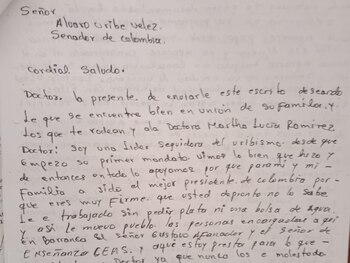 Señor
Alvaro Uribe Velez.
Senador de colombia.
Cordial Saludo.
Doctor, la presente de enviarle este escrito deseando
Le que se encuentre bien en union de su familia. y
Los que te rodean y ala Doctora Martha Lucia Ramirez
Doctor: Soy una Lider seguidora del uribismo. desde que
Empezo su primer mandato. vimos lo bien que hizo y
de entonces en todo lo apoyamos por que para mi y mi-
Familia a sido el mejor presidente de colombia por-
que eres muy Firme. que usted depronto no lo sabe
Le e trabajado sin pedir plata ni una bolsa de Agua
y asi le muevo pueblo. las personas encargadas aqui
en barranca el señor Gustavo Afanador y el señor de
Enseñanza CEAS. y aqui estoy presta para lo que-
Doctor ya que nunca los e molestado